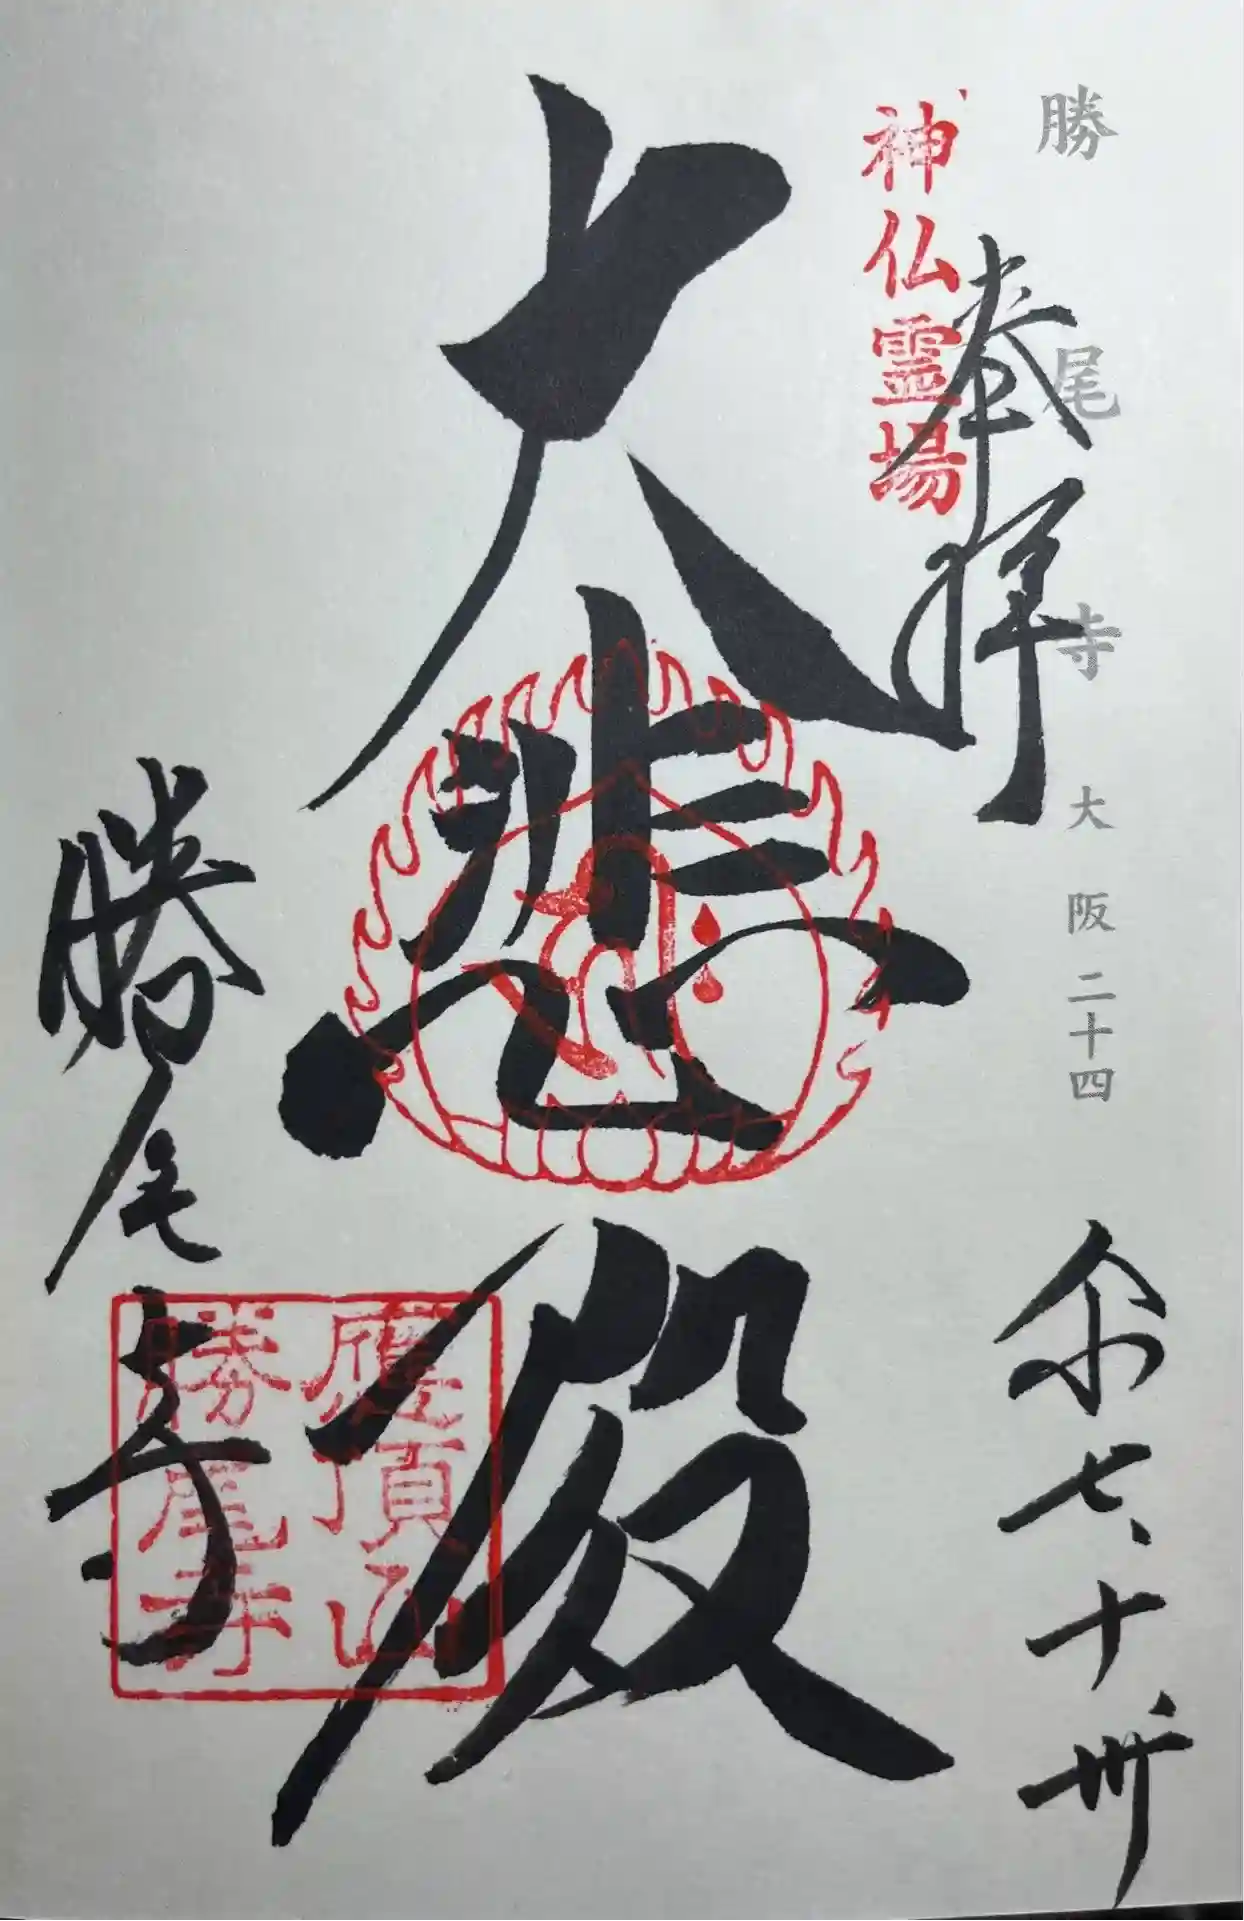 勝尾寺 大阪二十四
奉拝
神仏霊場
令七、十、卅
大悲殿
勝尾寺
應頂山
勝尾寺